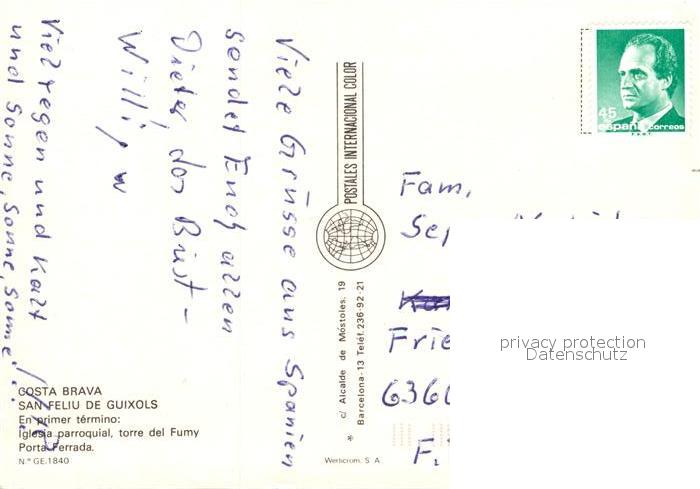 Viele Grüsse aus Spanien
sendet Euch allen
Dieter, der
Willi,
Viel regen und kalt
und Sonne, Sonne, Sonne!
COSTA BRAVA
SAN FELIU DE GUIXOLS
En primer término:
Iglesia parroquial, torre del Fumy
Porta Ferrada.
N.º GE.1840
POSTALES INTERNACIONAL COLOR
c/ Alcalde de Móstoles, 19
Barcelona-13 Teléf. 236-92-21
Werbicrom. S. A.
45
españa correos
Fam.
Frie
636
F.
privacy protection
Datenschutz